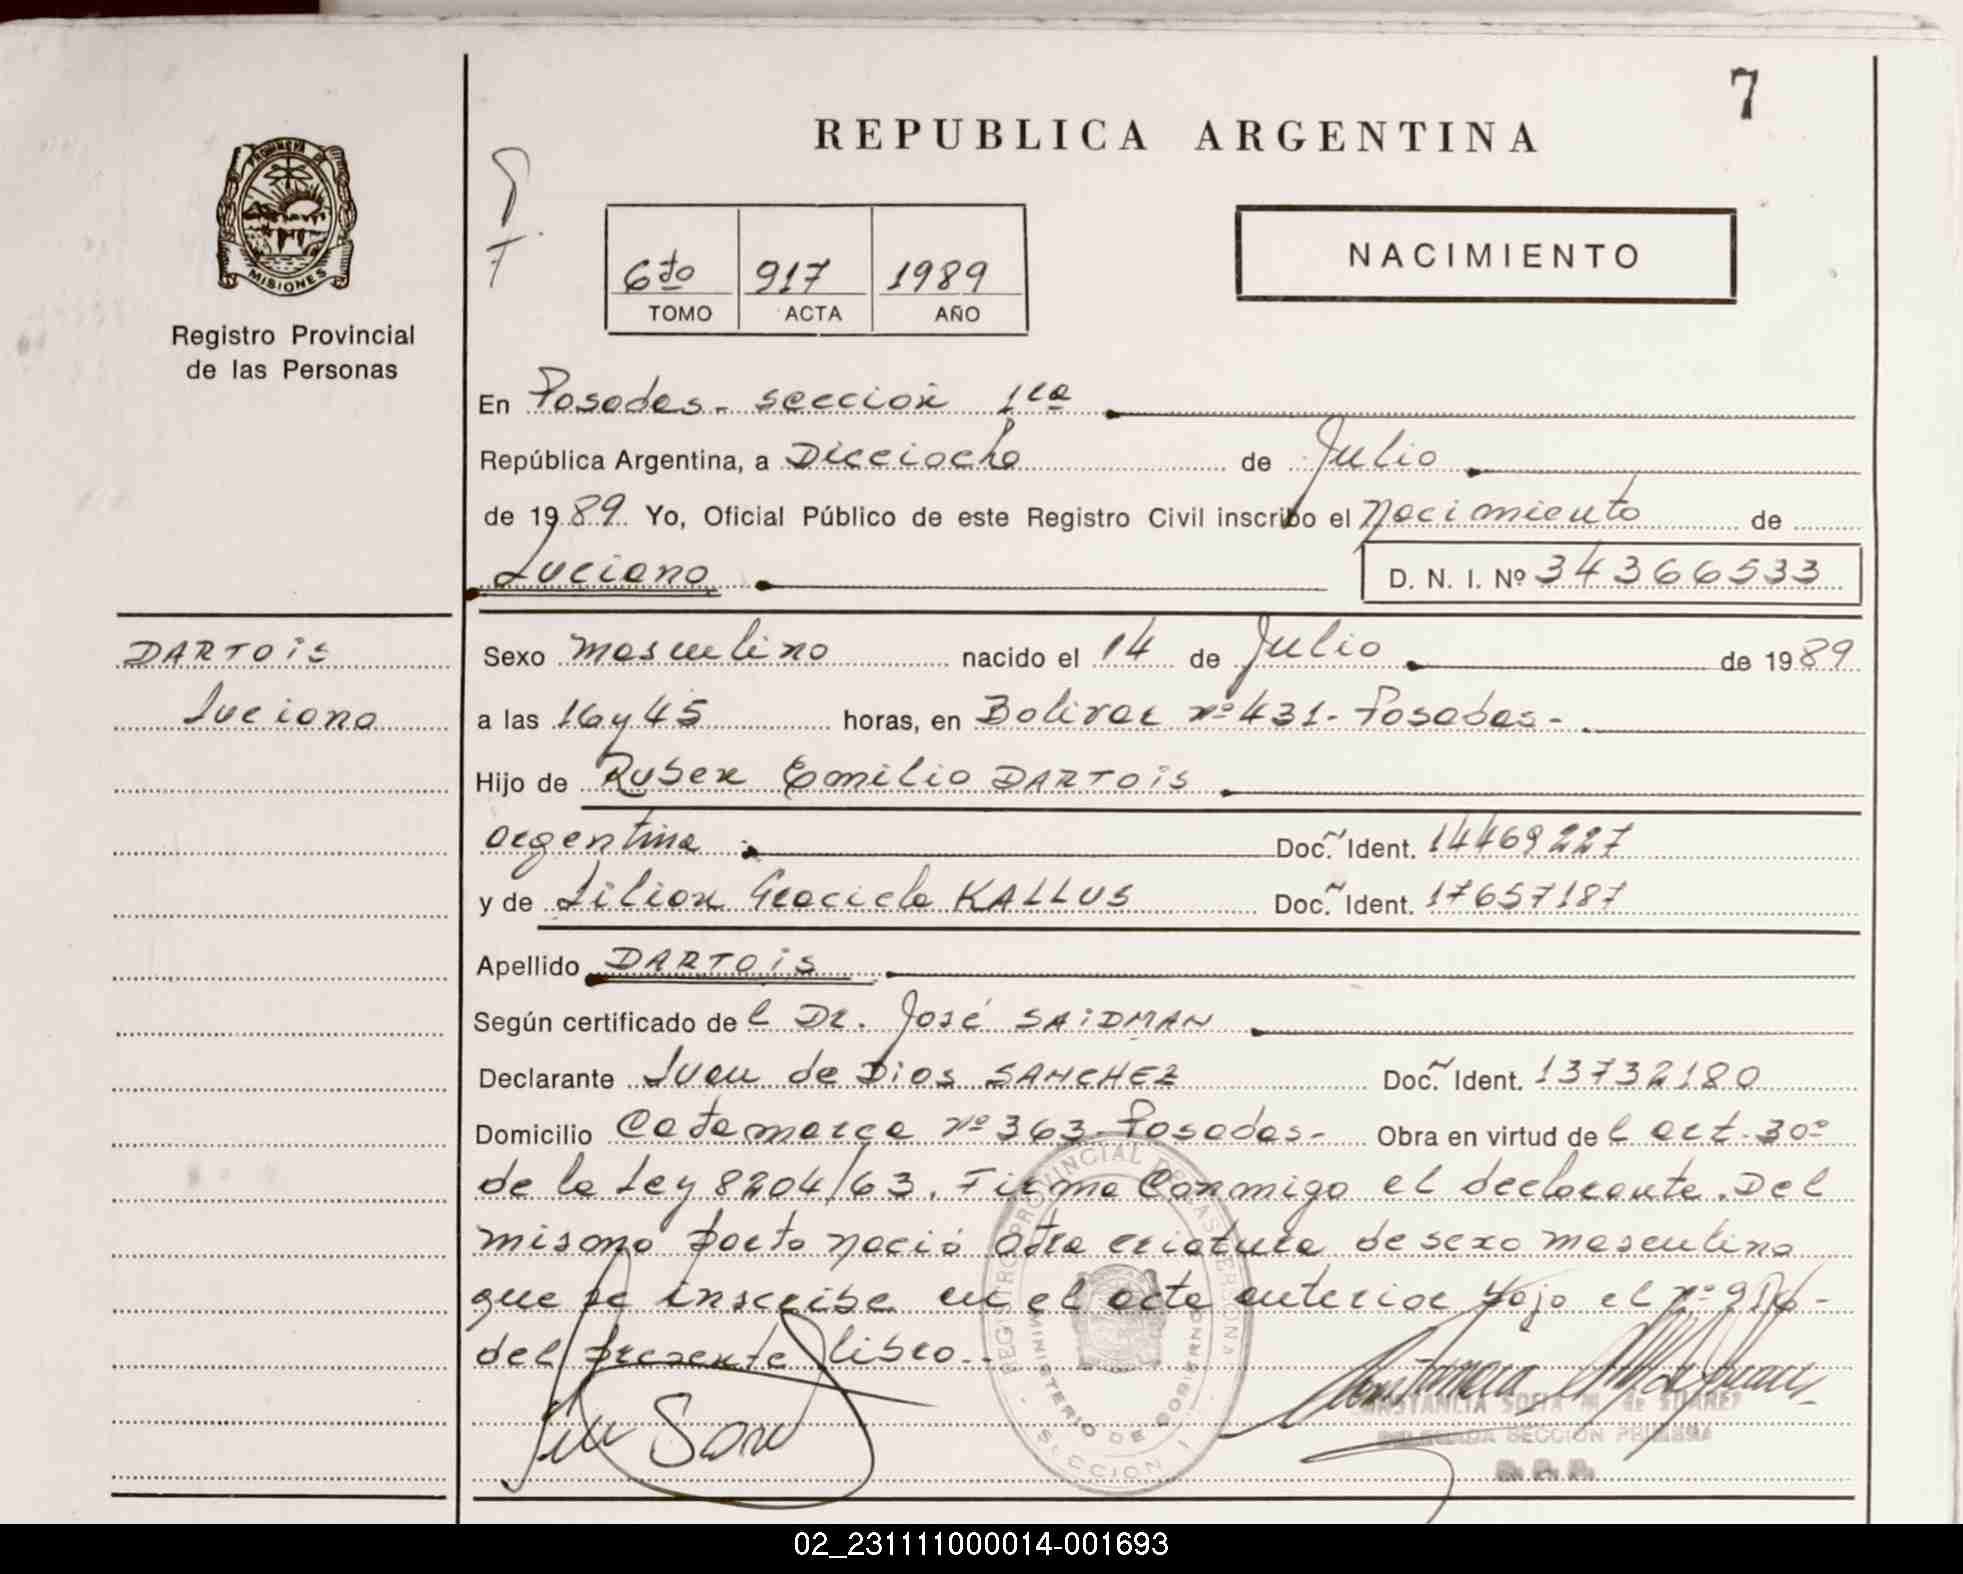 7
REPUBLICA ARGENTINA
PROVINCIA DE
MISIONES
Registro Provincial
de las Personas
6to 917 1989
TOMO ACTA AÑO
NACIMIENTO
En Posadas - sección 1ra
República Argentina, a Dieciocho de Julio
de 1989 Yo, Oficial Público de este Registro Civil inscribo el Nacimiento de
Luciano D. N. I. Nº 34366533
DARTOIS
Luciano
Sexo masculino nacido el 14 de Julio de 1989
a las 16 y 45 horas, en Bolívar nº 431 - Posadas -
Hijo de Ruben Emilio DARTOIS
argentina Doc. Ident. 14469227
y de Lilian Graciela KALLUS Doc. Ident. 17657187
Apellido DARTOIS
Según certificado del Dr. José SAIDMAN
Declarante Juan de Dios SANCHEZ Doc. Ident. 13732180
Domicilio Catamarca nº 363 - Posadas - Obra en virtud del art. 30º
de la Ley 8204/63. Firma Conmigo el declarante. Del
mismo parto nació otra criatura de sexo masculino
que se inscribe en el acta anterior bajo el nº 916 -
del presente libro.
REGISTRO PROVINCIAL DE LAS PERSONAS
MINISTERIO DE GOBIERNO
SECCION 1
CONSTANCIA SOFIA M. de SUAREZ
DELEGADA SECCION PRIMERA
02_231111000014-001693